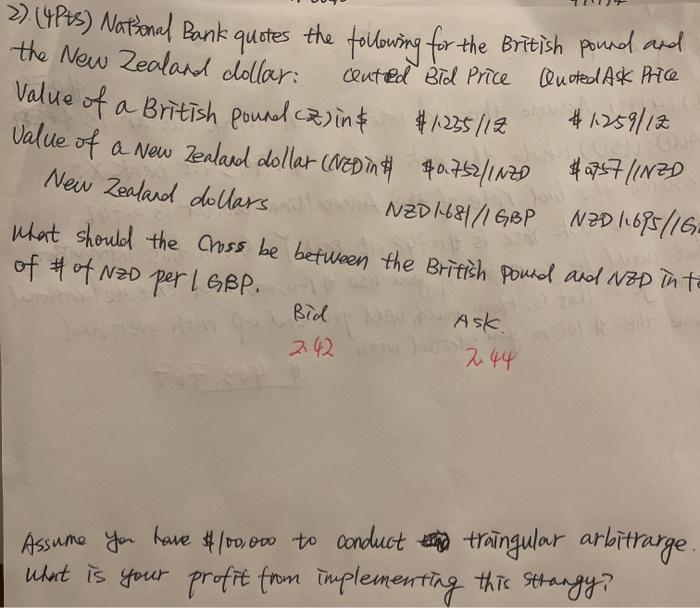 2). (4Pts) National Bank quotes the following for the British pound and
the New Zealand dollar: Quoted Bid Price Quoted Ask Price
Value of a British pound (£) in $ $1.235/1£ $1.259/1£
Value of a New Zealand dollar (NZD) in $ $0.752/1NZD $0.757/1NZD
New Zealand dollars NZD1.681/1 GBP NZD 1.695/1G
What should the Cross be between the British Pound and NZD in te
of # of NZD per 1 GBP.
Bid Ask.
2.42 2.44
Assume you have $100,000 to conduct traingular arbitrarge.
What is your profit from implementing this strangy?